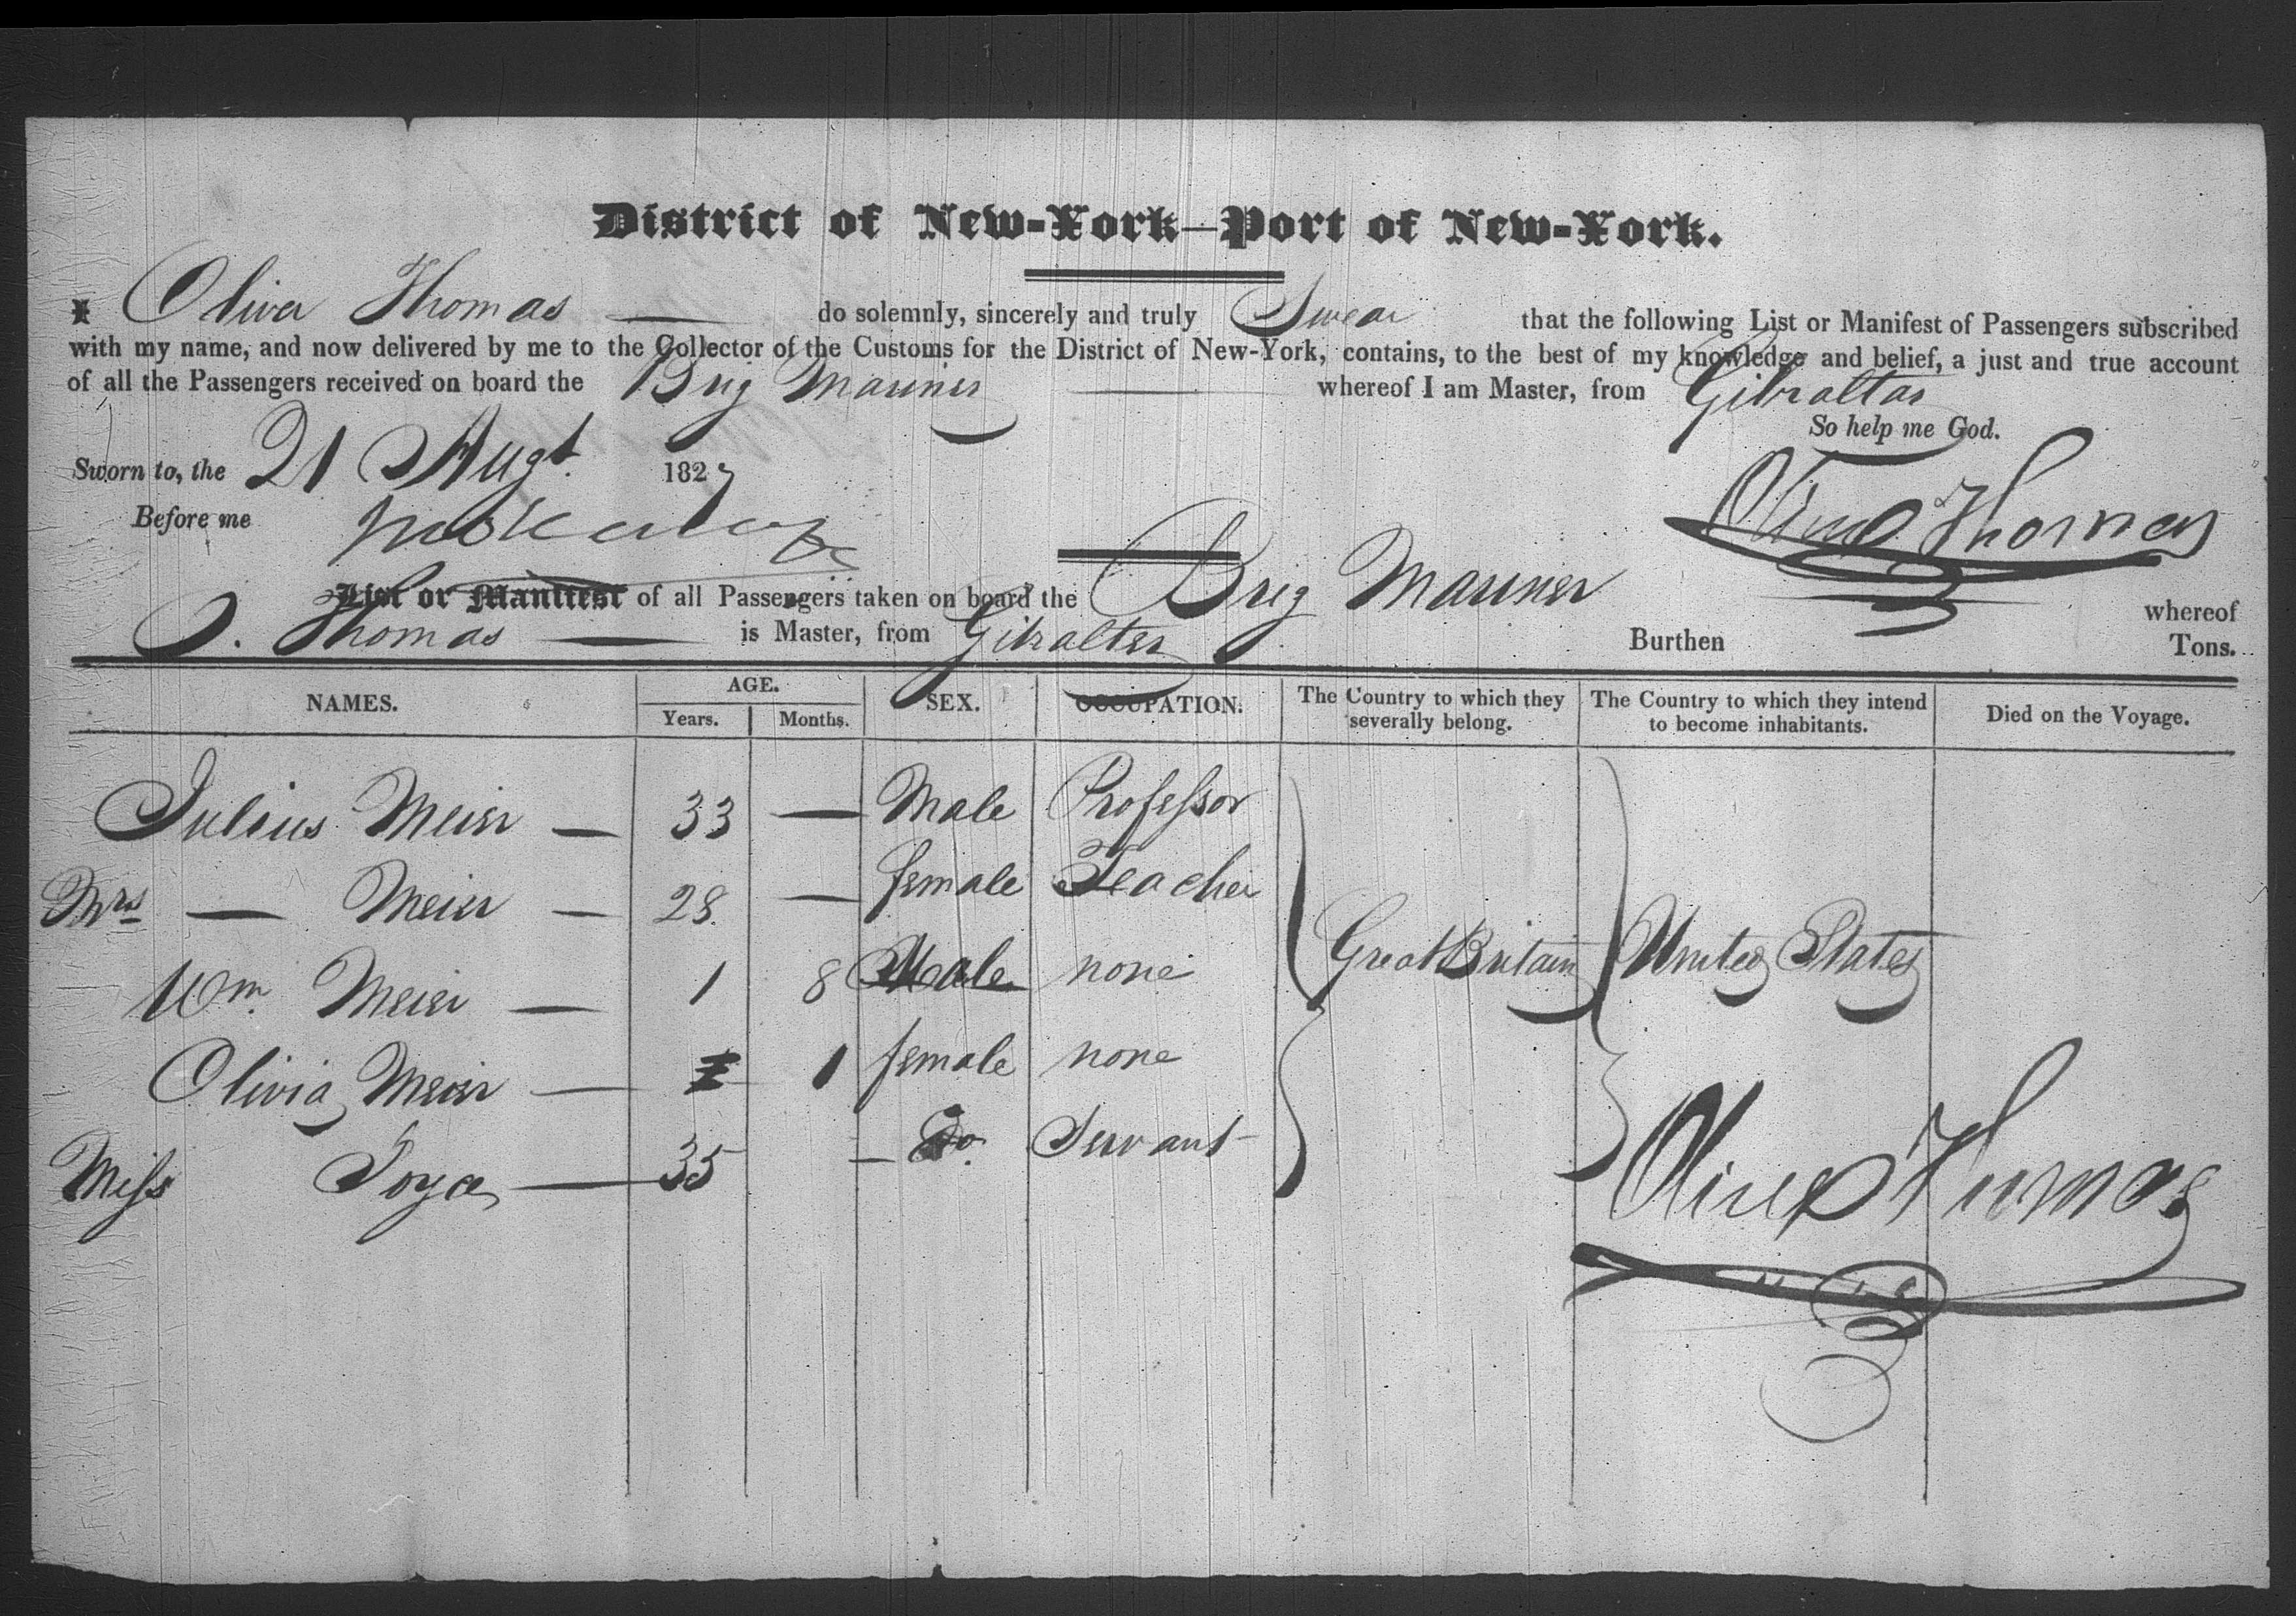 District of New-York—Port of New-York.
I Oliver Thomas — do solemnly, sincerely and truly Swear that the following List or Manifest of Passengers subscribed
with my name, and now delivered by me to the Collector of the Customs for the District of New-York, contains, to the best of my knowledge and belief, a just and true account
of all the Passengers received on board the Brig Mariner — whereof I am Master, from Gibraltar
So help me God.
Sworn to, the 21 Augt. 1827
Before me
Oliver Thomas
List or Manifest of all Passengers taken on board the Brig Mariner whereof
O. Thomas — is Master, from Gibralter Burthen Tons.
NAMES. AGE. Years. Months. SEX. OCCUPATION. The Country to which they severally belong. The Country to which they intend to become inhabitants. Died on the Voyage.
Julius Meier — 33 — Male Professor
Mrs — Meier — 28. — female Teacher
Great Britain United States
Wm. Meier — 1 8 Male none
Olivia Meier — 1 female none
Miss Joya — 35 — Do. Servant
Oliver Thomas